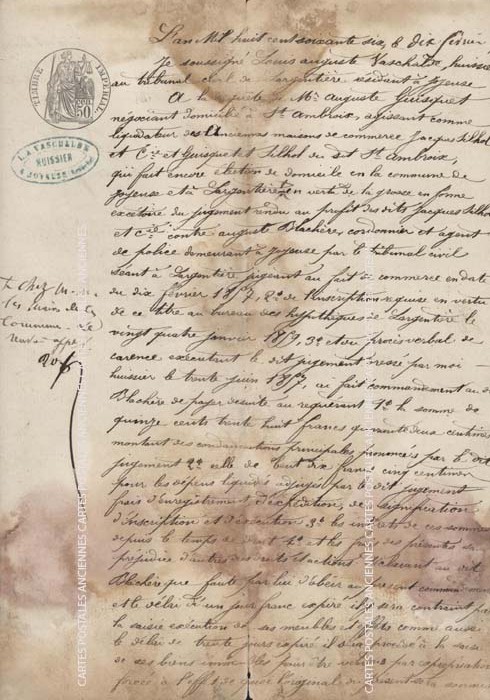 L'an Mil huit cent soixante six, le dix février
Je soussigné Louis Auguste Vaschalde, huissier
au tribunal civil de Largentière résidant à Joyeuse
A la requête de Mr Auguste Guisquet
négociant domicilié à St Ambroix, agissant comme
liquidateur des anciennes maisons de commerce Jacques Silhol
et Cie et Guisquet et Silhol du dit St Ambroix,
qui fait encore élection de domicile en la commune de
Joyeuse et à Largentière, en vertu de la grosse en forme
exécutoire du jugement rendu au profit des dits Jacques Silhol
et Cie contre Auguste Blachère, cordonnier et agent
de police demeurant à Joyeuse par le tribunal civil
séant à Largentière jugeant au fait de commerce en date
du dix février 1857, 2º de l'inscription requise en vertu
de ce titre au bureau des hypothèques de Largentière le
vingt quatre janvier 3º et du procès verbal de
carence exécutant le dit jugement dressé par moi
huissier le trente juin 1857, ai fait commandement au dit
Blachère de payer de suite au requérant 1º la somme de
quinze cents trente huit francs quarante deux centimes
montant des condamnations principales prononcées par le dit
jugement 2º celle de cent dix francs cinq centimes
pour les dépens liquidés adjugés par le dit jugement
frais d'enregistrement d'expédition, de signification
d'inscription et d'exécution 3º les intérêts de ces sommes
depuis le temps de droit 4º et les frais des présentes sans
préjudice d'autres droits et actions déclarant au dit
Blachère que faute par lui d'obéir au présent commandement
et le délai d'un jour franc expiré il y sera contraint par
la saisie exécution de ses meubles et effets comme aussi
le délai de trente jours expiré il sera procédé à la saisie
de ses biens immeubles pour être vendus par expropriation
forcée à l'effet de quoi l'original du présent sera soumis
TIMBRE IMPÉRIAL
50
L. A. VASCHALDE
HUISSIER
A JOYEUSE
CARTES POSTALES ANCIENNES CARTES POSTALES ANCIENNES CARTES
CARTES POSTALES ANCIENNES CARTES POSTALES ANCIENNES CARTES